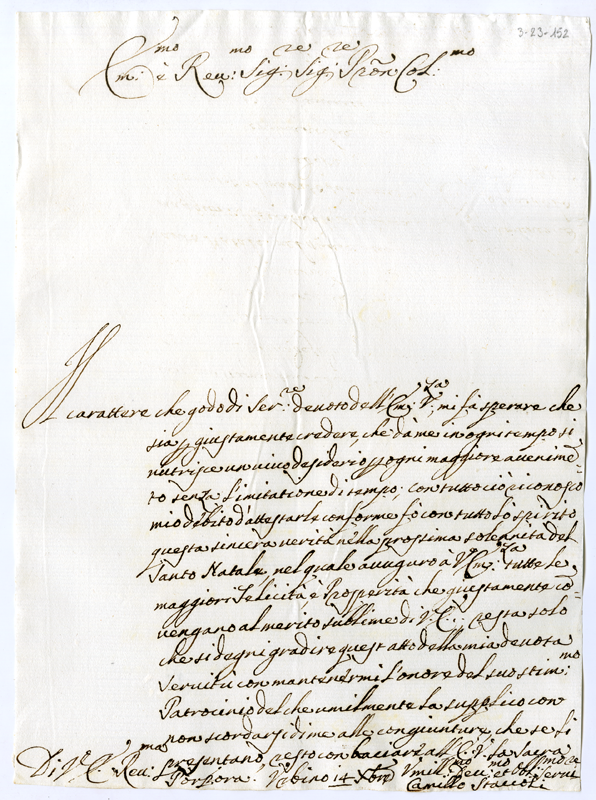 3-23-152
Em:mo è Reu:mo Sig:re Sig:re Pron Col:mo
Il carattere che godo di Ser:re deuoto dell'Em:za V:, mi fà sperare che
sia p giustamente credere, che dà me in ogni tempo si
nutrisce un uiuo desiderio p ogni maggiore auenimē=
to senza limitatione di tempo; con tutto ciò riconosco
mio debito d'attestarle conforme fò con tutto lo spirito
questa sincera uerità nella prossima solennità del
Santo Natale, nel quale auuguro a V: Em:za tutte le
maggiori Felicità è Prosperità che giustamente cō=
uengano al merito sublime di V: E:; resta solo
che si degni gradire quest'atto della mia deuota
seruitù con mantenermi l'onore del suo stim:mo
Patrocinio del che umilmente la supplico con
non scordarsi di me alle congiunture, che se li
presentano, resto con baciare all'E: V: la Sacra
Porpora. Vrbino 14 Xbre
Di V: E: Reu:ma
Vmil:mo Deu:mo et Obl:mo Serui
Camillo Staccoli